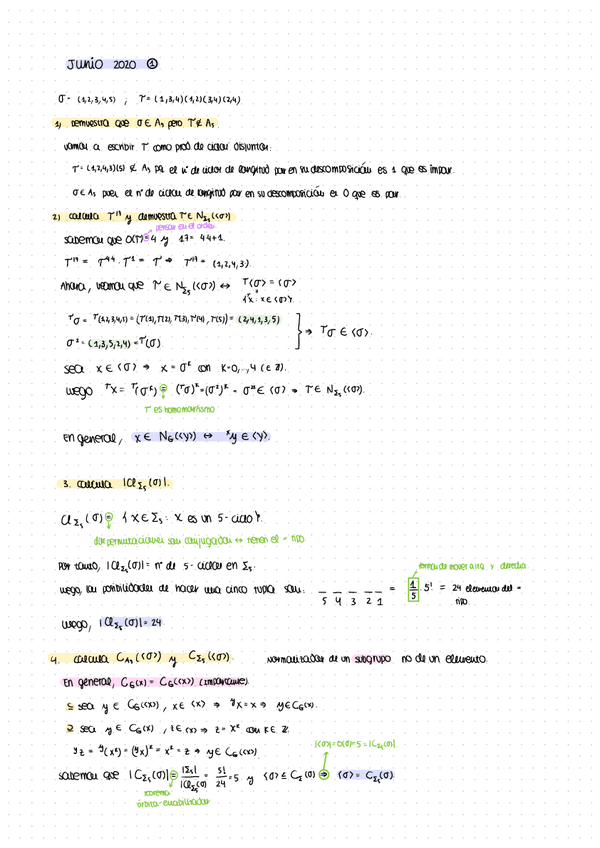 Junio 2020 ①
σ = (1,2,3,4,5) ; τ = (1,3,4)(1,2)(3,4)(2,4)
1) Demuestra que σ ∈ A₅ pero τ ∉ A₅.
Vamos a escribir τ como prod de ciclos disjuntos:
τ = (1,2,4,3)(5) ∉ A₅ pq el nº de ciclos de longitud par en su descomposición es 1 que es impar.
σ ∈ A₅ pues el nº de ciclos de longitud par en su descomposición es 0 que es par.
2) Calcula τ¹⁷ y demuestra τ ∈ N_Σ₅(<σ>)
pensar en el orden
sabemos que O(τ) = 4 y 17 = 4·4+1.
τ¹⁷ = τ⁴·⁴ · τ¹ = τ ⇒ τ¹⁷ = (1,2,4,3).
Ahora, veamos que τ ∈ N_Σ₅(<σ>) ↔ ᵗ<σ> = <σ>
{ᵗx : x ∈ <σ>}.
ᵗσ = ᵗ(1,2,3,4,5) = (τ(1), τ(2), τ(3), τ(4), τ(5)) = (2,4,1,3,5)
σ² = (1,3,5,2,4) = ᵗ(σ)
} ⇒ ᵗσ ∈ <σ>.
sea x ∈ <σ> ⇒ x = σᵏ con k=0,...,4 (∈ ℤ).
luego ᵗx = ᵗ(σᵏ) = (ᵗσ)ᵏ = (σ²)ᵏ = σ²ᵏ ∈ <σ> ⇒ τ ∈ N_Σ₅(<σ>).
τ es homomorfismo
En general, x ∈ N_G(<y>) ↔ ˣy ∈ <y>.
3. Calcula |Cl_Σ₅(σ)|.
Cl_Σ₅(σ) = { x ∈ Σ₅ : x es un 5-ciclo }.
dos permutaciones son conjugadas ↔ tienen el = tipo
Por tanto, |Cl_Σ₅(σ)| = nº de 5-ciclos en Σ₅.
formas de mover a izq y derecha
luego, las posibilidades de hacer una cinco tupla son: 5 4 3 2 1 = 1/5 · 5! = 24 elementos del = tipo.
luego, |Cl_Σ₅(σ)| = 24.
4. Calcula C_A₅(<σ>) y C_Σ₅(<σ>). Normalizador de un subgrupo no de un elemento.
En general, C_G(x) = C_G(<x>) (importante).
⊆ sea y ∈ C_G(<x>), x ∈ <x> ⇒ ʸx = x ⇒ y ∈ C_G(x).
⊇ sea y ∈ C_G(x), z ∈ <x> ⇒ z = xᵏ con k ∈ ℤ.
ʸz = ʸ(xᵏ) = (ʸx)ᵏ = xᵏ = z ⇒ y ∈ C_G(<x>)
|<σ>| = O(σ) = 5 = |C_Σ₅(σ)|
sabemos que |C_Σ₅(σ)| = |Σ₅| / |Cl_Σ₅(σ)| = 5!/24 = 5 y <σ> ≤ C_Σ(σ) ⇒ <σ> = C_Σ₅(σ)
teorema
órbita-estabilizador